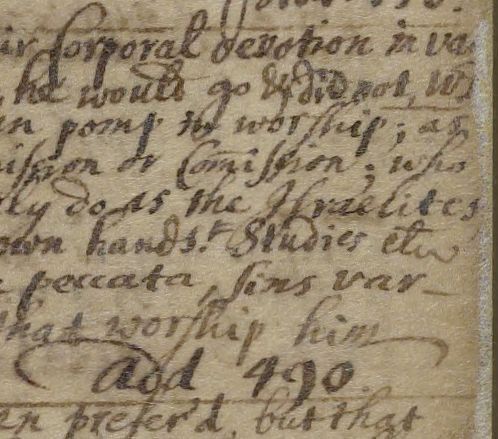 Corporal devotion in va
he would go & did not, w
in pomp to worship; as
ission or Comission; who
ly do as the Israelites
own hands. Studies
peccata, sins var-
that worship him
add 490
en prefer'd, but that